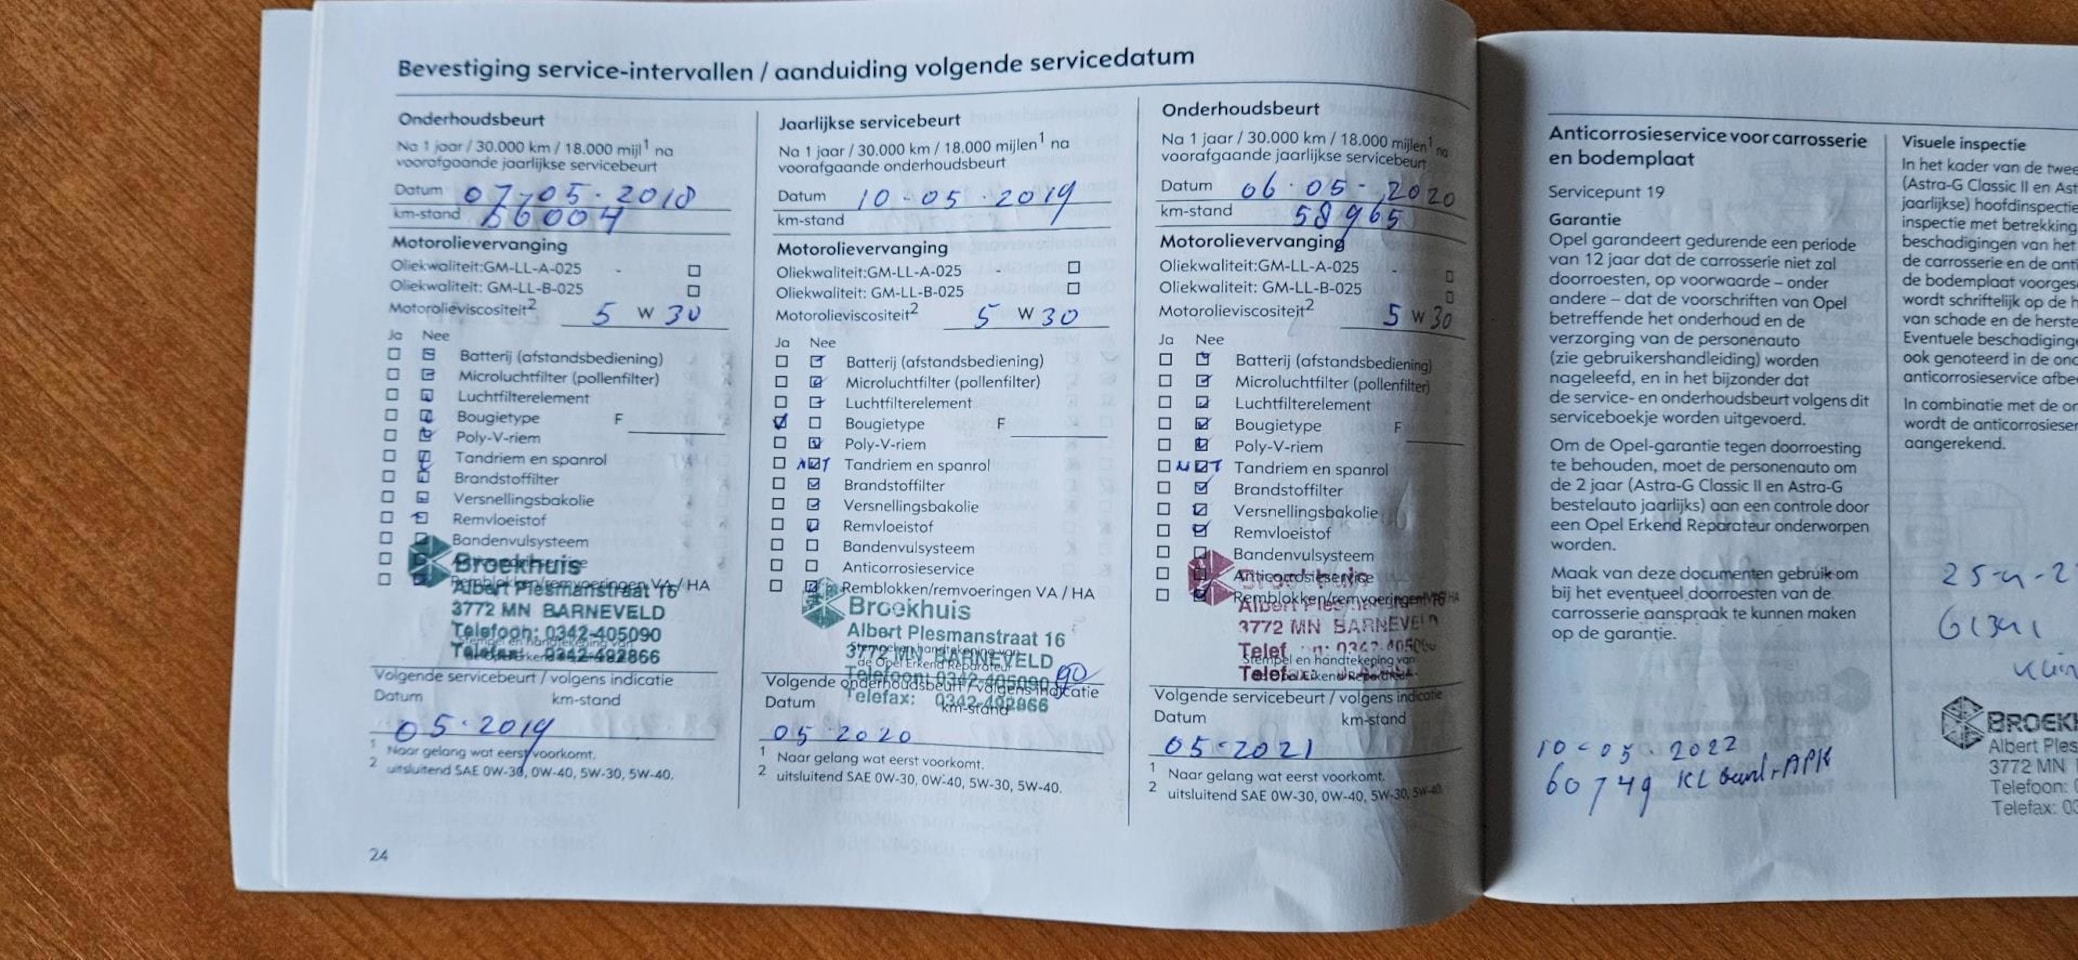 Bevestiging service-intervallen / aanduiding volgende servicedatum
Onderhoudsbeurt
Na 1 jaar / 30.000 km / 18.000 mijl¹ na
voorafgaande jaarlijkse servicebeurt
Datum 07-05-2018
km-stand 56004
Motorolievervanging
Oliekwaliteit:GM-LL-A-025 -
Oliekwaliteit: GM-LL-B-025
Motorolieviscositeit² 5 W 30
Ja Nee
Batterij (afstandsbediening)
Microluchtfilter (pollenfilter)
Luchtfilterelement
Bougietype F
Poly-V-riem
Tandriem en spanrol
Brandstoffilter
Versnellingsbakolie
Remvloeistof
Bandenvulsysteem
Broekhuis
Remblokken/remvoeringen VA / HA
Albert Plesmanstraat 16
3772 MN BARNEVELD
Telefoon: 0342-405090
Telefax: 0342-492866
Volgende servicebeurt / volgens indicatie
Datum km-stand
05-2019
¹ Naar gelang wat eerst voorkomt.
² uitsluitend SAE 0W-30, 0W-40, 5W-30, 5W-40.
24
Jaarlijkse servicebeurt
Na 1 jaar / 30.000 km / 18.000 mijlen¹ na
voorafgaande onderhoudsbeurt
Datum 10-05-2019
km-stand
Motorolievervanging
Oliekwaliteit:GM-LL-A-025 -
Oliekwaliteit: GM-LL-B-025
Motorolieviscositeit² 5 W 30
Ja Nee
Batterij (afstandsbediening)
Microluchtfilter (pollenfilter)
Luchtfilterelement
Bougietype F
Poly-V-riem
NVT Tandriem en spanrol
Brandstoffilter
Versnellingsbakolie
Remvloeistof
Bandenvulsysteem
Anticorrosieservice
Remblokken/remvoeringen VA / HA
Broekhuis
Albert Plesmanstraat 16
Stempel en handtekening van
3772 MN BARNEVELD
de Opel Erkend Reparateur
Telefoon: 0342-405090
Volgende onderhoudsbeurt / volgens indicatie
Telefax: 0342-492866
Datum km-stand
05 2020
¹ Naar gelang wat eerst voorkomt.
² uitsluitend SAE 0W-30, 0W-40, 5W-30, 5W-40.
Onderhoudsbeurt
Na 1 jaar / 30.000 km / 18.000 mijlen¹ na
voorafgaande jaarlijkse servicebeurt
Datum 06-05-2020
km-stand 58965
Motorolievervanging
Oliekwaliteit:GM-LL-A-025 -
Oliekwaliteit: GM-LL-B-025
Motorolieviscositeit² 5 W 30
Ja Nee
Batterij (afstandsbediening)
Microluchtfilter (pollenfilter)
Luchtfilterelement
Bougietype F
Poly-V-riem
NVT Tandriem en spanrol
Brandstoffilter
Versnellingsbakolie
Remvloeistof
Bandenvulsysteem
Anticorrosieservice
Remblokken/remvoeringen
3772 MN BARNEVELD
Stempel en handtekening van
Volgende servicebeurt / volgens indicatie
Datum km-stand
05-2021
¹ Naar gelang wat eerst voorkomt.
² uitsluitend SAE 0W-30, 0W-40, 5W-30, 5W-40.
Anticorrosieservice voor carrosserie
en bodemplaat
Servicepunt 19
Garantie
Opel garandeert gedurende een periode
van 12 jaar dat de carrosserie niet zal
doorroesten, op voorwaarde – onder
andere – dat de voorschriften van Opel
betreffende het onderhoud en de
verzorging van de personenauto
(zie gebruikershandleiding) worden
nageleefd, en in het bijzonder dat
de service- en onderhoudsbeurt volgens dit
serviceboekje worden uitgevoerd.
Om de Opel-garantie tegen doorroesting
te behouden, moet de personenauto om
de 2 jaar (Astra-G Classic II en Astra-G
bestelauto jaarlijks) aan een controle door
een Opel Erkend Reparateur onderworpen
worden.
Maak van deze documenten gebruik om
bij het eventueel doorroesten van de
carrosserie aanspraak te kunnen maken
op de garantie.
10-05 2022
60749 KL beurt + APK
Visuele inspectie
In het kader van de twee
(Astra-G Classic II en Ast
jaarlijkse) hoofdinspectie
inspectie met betrekking
beschadigingen van het
de carrosserie en de anti
de bodemplaat voorges
wordt schriftelijk op de h
van schade en de herste
Eventuele beschadiging
ook genoteerd in de on
anticorrosieservice afbe
In combinatie met de on
wordt de anticorrosieser
aangerekend.
25-4-2
61341
BROEKH
Albert Ples
3772 MN
Telefoon: 0
Telefax: 03